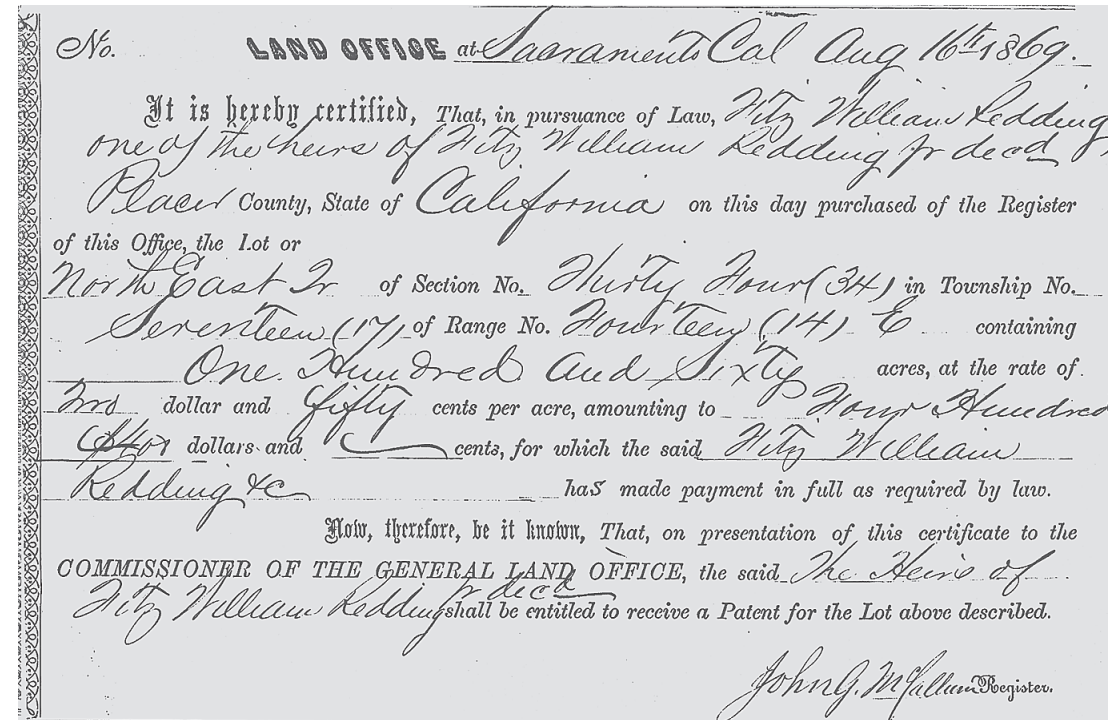 No. LAND OFFICE at Sacramento Cal Aug 16th 1869.
It is hereby certified, That, in pursuance of Law, Fitz William Redding
one of the heirs of Fitz William Redding Jr decd
Placer County, State of California on this day purchased of the Register
of this Office, the Lot or
North East Qr of Section No. Thirty Four (34) in Township No.
Seventeen (17) of Range No. Fourteen (14) E containing
One Hundred and Sixty acres, at the rate of
Two dollar and fifty cents per acre, amounting to Four Hundred
dollars and cents, for which the said Fitz William
Redding &c has made payment in full as required by law.
Now, therefore, be it known, That, on presentation of this certificate to the
COMMISSIONER OF THE GENERAL LAND OFFICE, the said The Heirs of
Fitz William Redding Jr decd shall be entitled to receive a Patent for the Lot above described.
John G. McCallum Register.